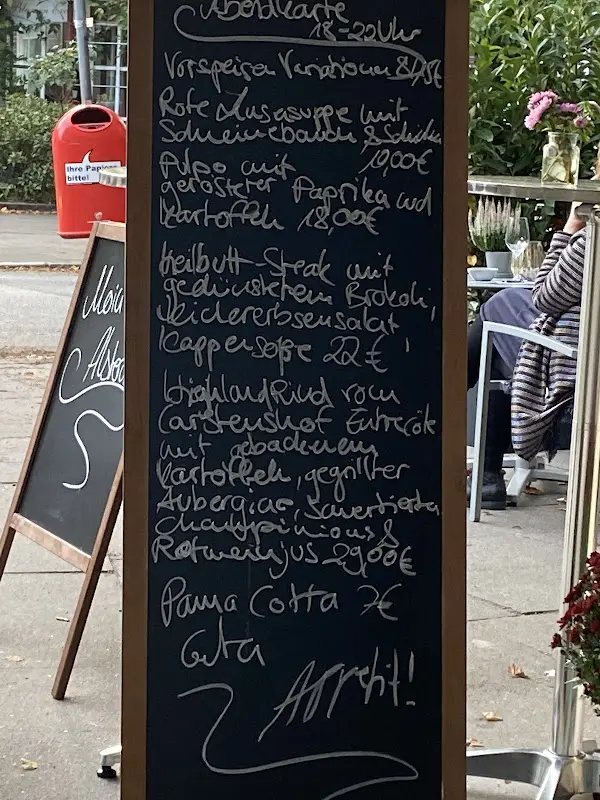 Abendkarte
18-22Uhr
Vorspeisen Variationen
Rote Misosuppe mit
Schweinebauch &
19,00€
Pulpo mit
gerösteter Paprika und
Kartoffeln 18,00€
Heilbutt-Steak mit
gedünstetem Brokoli,
Kichererbsensalat
Kappersoße 22€
Highland Rind vom
Carstenshof Entrecôte
mit gebackenem
Kartoffeln, gegrillter
Aubergine, sautierten
Champinions &
Rotweinjus 29,00€
Panna Cotta 7€
Guten
Appetit!
Ihre Papiere
bitte!